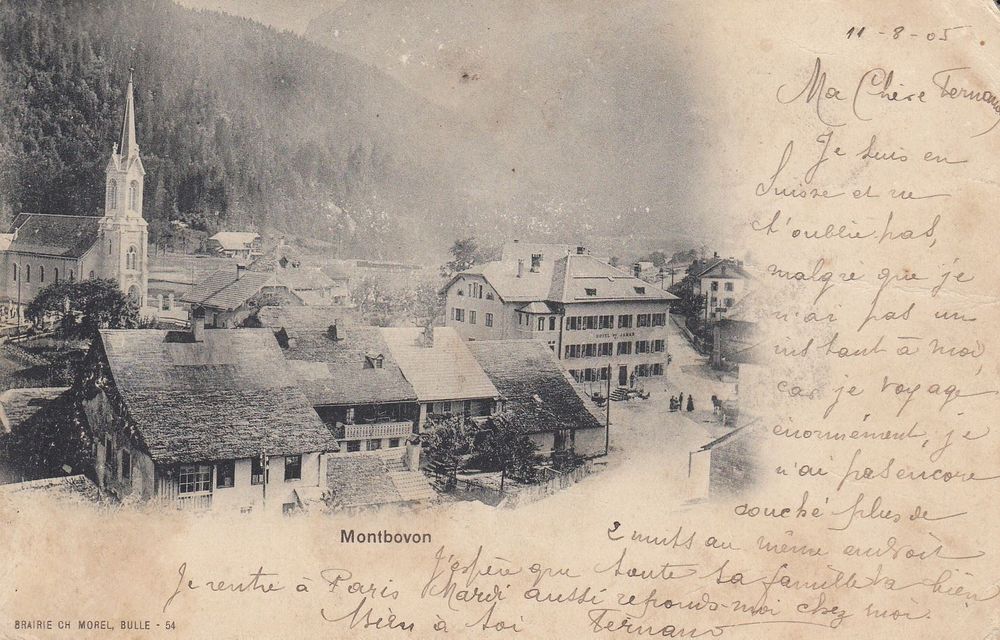 11-8-05
Ma Chère Fernand
Je suis en
Suisse et ne
t'oublie pas,
malgré que je
n'ai pas un
instant à moi,
car je voyage
énormément, je
n'ai pas encore
couché plus de
2 nuits au même endroit
J'espère que toute ta famille va bien
Je rentre à Paris Mardi aussi réponds-moi chez moi.
Bien à toi Fernand
HOTEL DE JAMAN
Montbovon
BRAIRIE CH MOREL, BULLE - 54